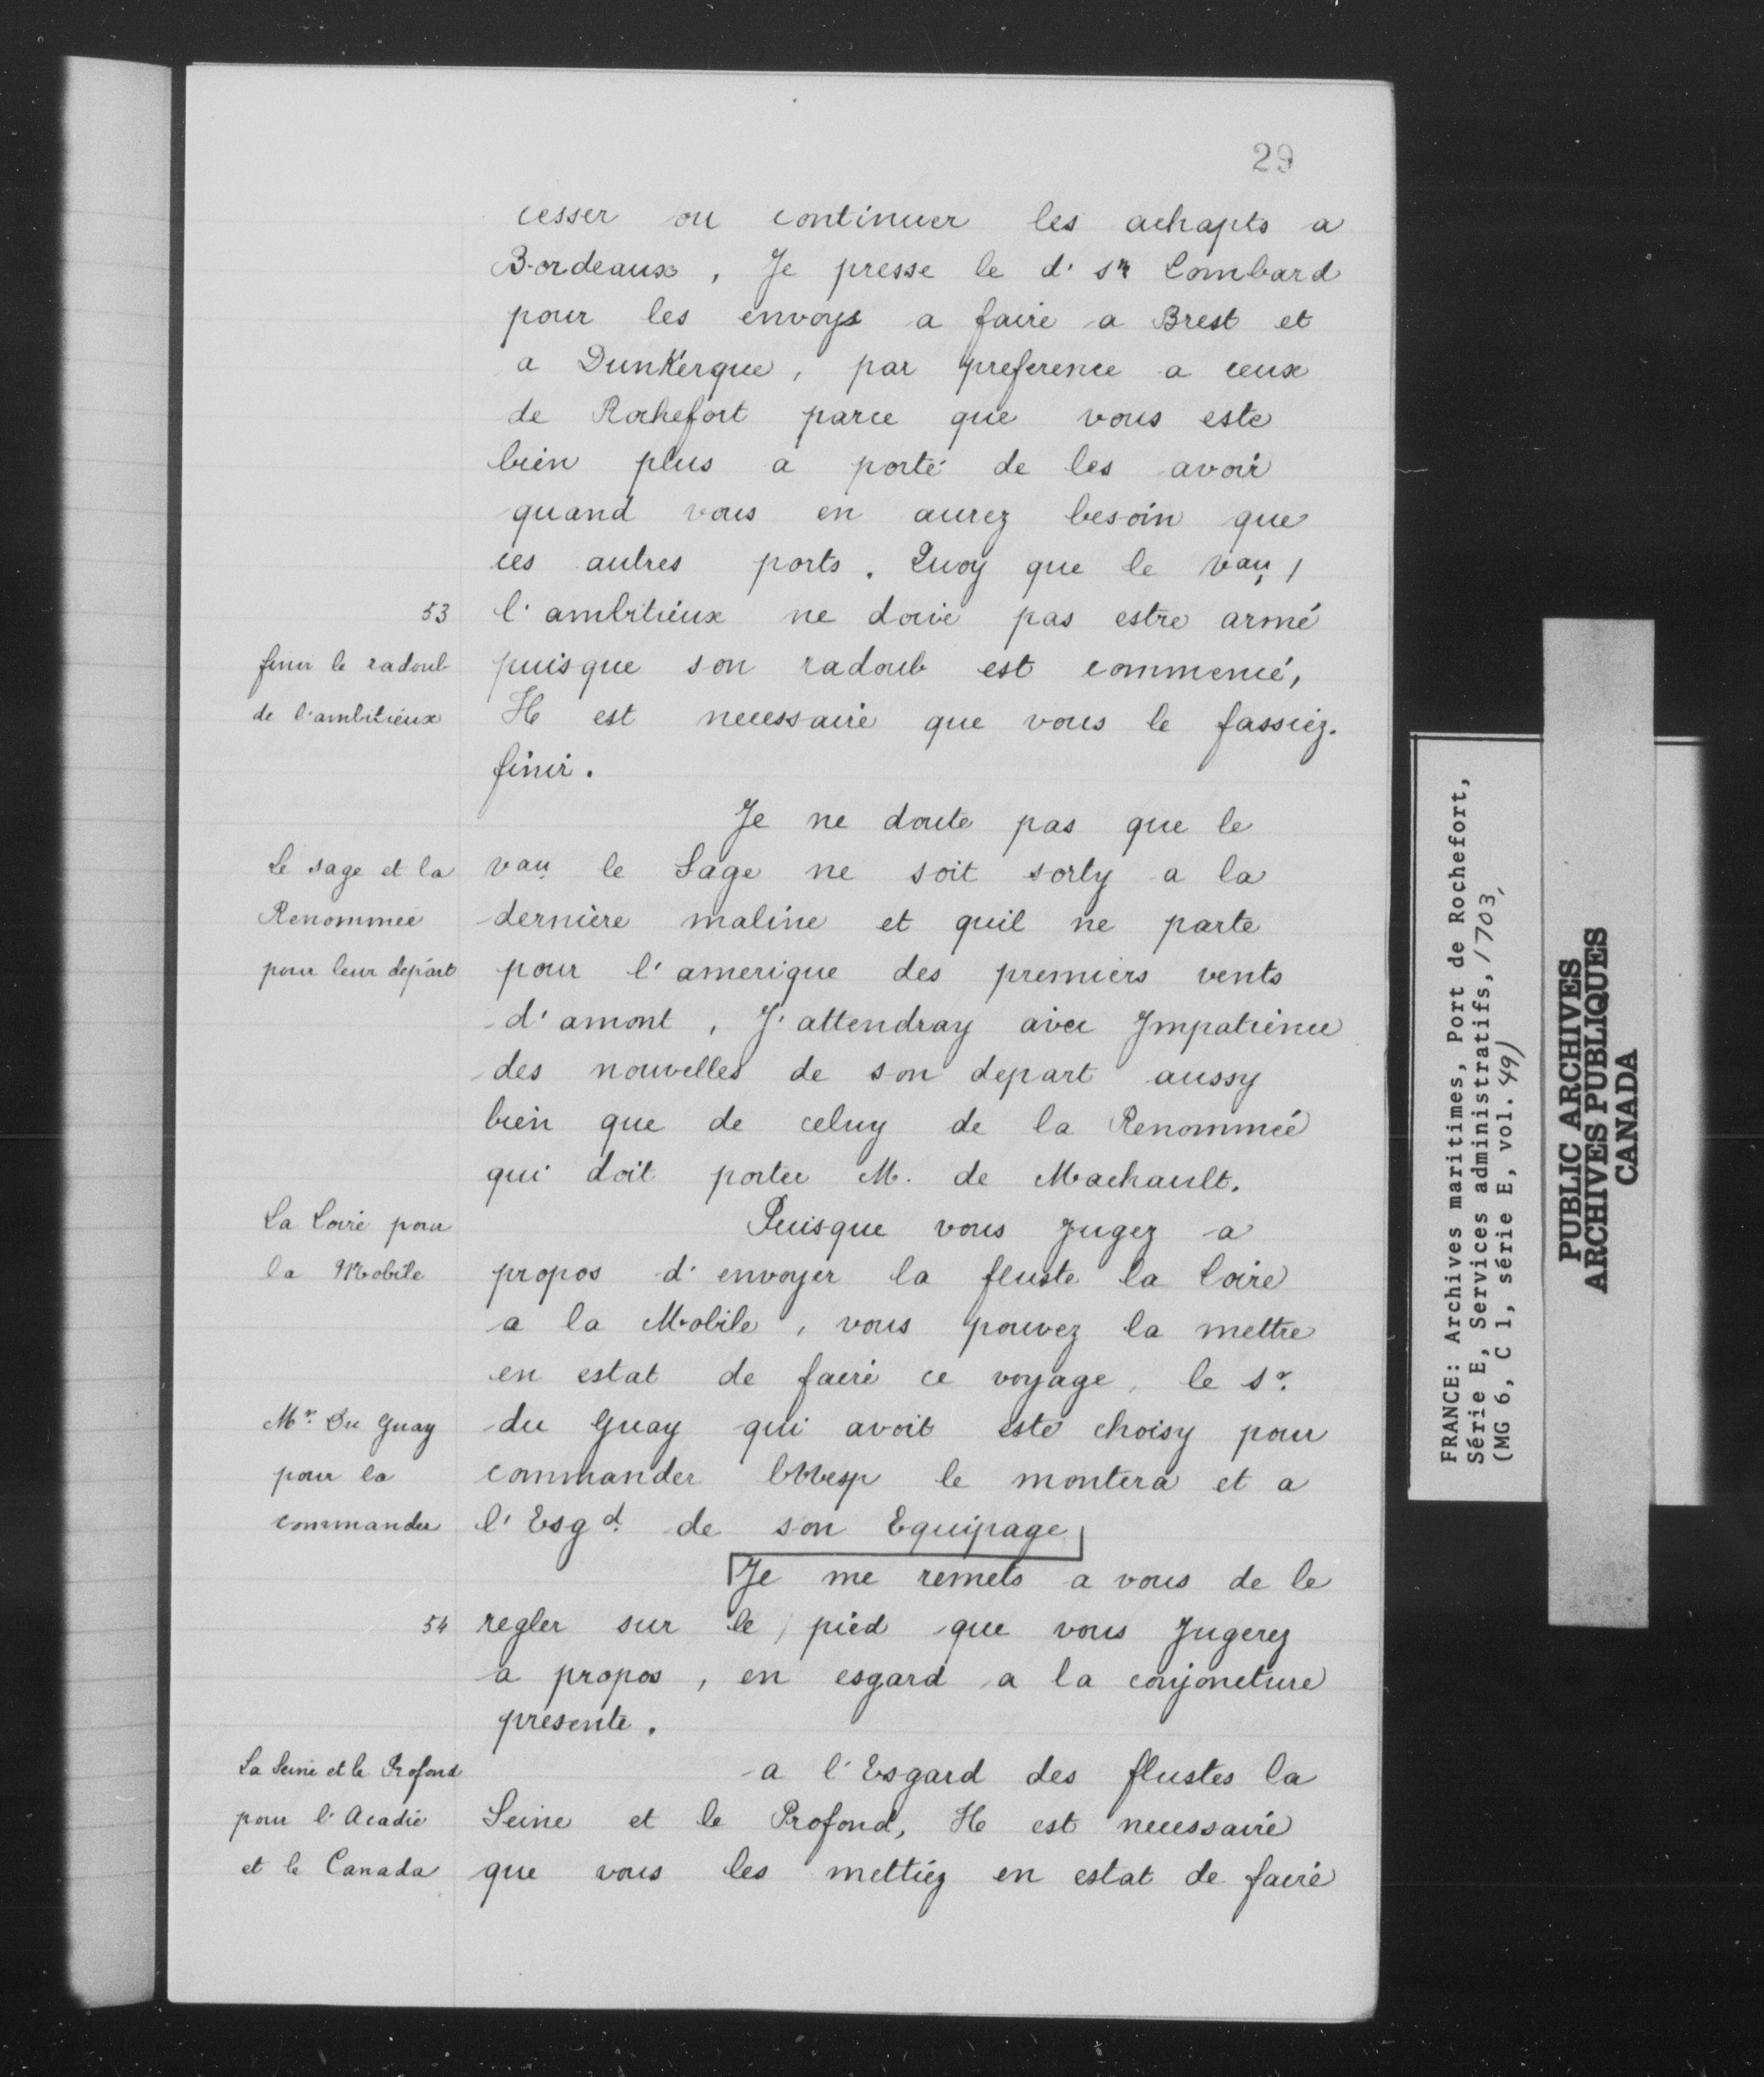 29
cesser ou continuer les achapts a
Bordeaux, Je presse le d. sr Lombard
pour les envoys a faire a Brest et
a Dunkerque, par preference a ceux
de Rochefort parce que vous este
bien plus a porté de les avoir
quand vous en aurez besoin que
ces autres ports. Quoy que le vau
53
l'ambitieux ne doive pas estre armé
finir le radoub
puisque son radoub est commencé,
de l'ambitieux
Il est necessaire que vous le fassiez.
finir.
Je ne doute pas que le
Le sage et la
vau le Sage ne soit sorty a la
Renommée
derniere maline et quil ne parte
pour leur depart
pour l'amerique des premiers vents
d'amont, J'attendray avec Impatience
des nouvelles de son depart aussy
bien que de celuy de la Renommée
qui doit porter M. de Machault.
La Loire pour
Puisque vous Jugez a
la Mobile
propos d'envoyer la fluste la Loire
a la Mobile, vous pouvez la mettre
en estat de faire ce voyage, le sr.
Mr. Du Guay
du Guay qui avoit esté choisy pour
pour la
commander le montera et a
commander
l'Esgd. de son Equipage
Je me remets a vous de le
54
regler sur le pied que vous Jugerez
a propos, en esgard a la conjoncture
presente.
La Seine et le Profond
a l'Esgard des flustes la
pour l'Acadie
Seine et le Profond, Il est necessaire
et le Canada
que vous les mettiez en estat de faire
FRANCE: Archives maritimes, Port de Rochefort,
Série E, Services administratifs, 1703,
(MG 6, C 1, série E, vol. 49)
PUBLIC ARCHIVES
ARCHIVES PUBLIQUES
CANADA